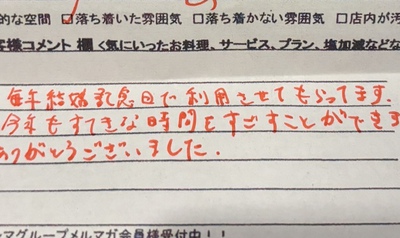 的な空間 □落ち着いた雰囲気 □落ち着かない雰囲気 □店内が汚
客様コメント欄<気にいったお料理、サービス、プラン、塩加減などな
毎年結婚記念日で利用させてもらってます.
今年もすてきな時間をすごすことができます
ありがとうございました.
マグループメルマガ会員様受付中!!